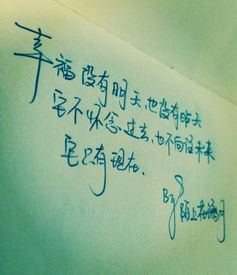 幸福没有明天,也没有昨天
它不怀念过去,也不向往未来
它只有现在.
By 陌上